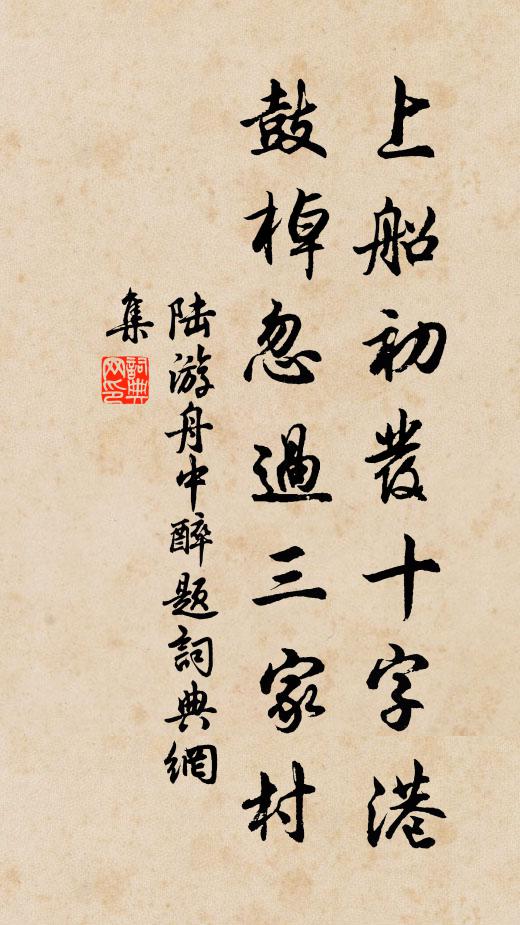 上船初發十字港
鼓棹忽過三家村
陆游舟中醉题詞典網
集
詞典网印